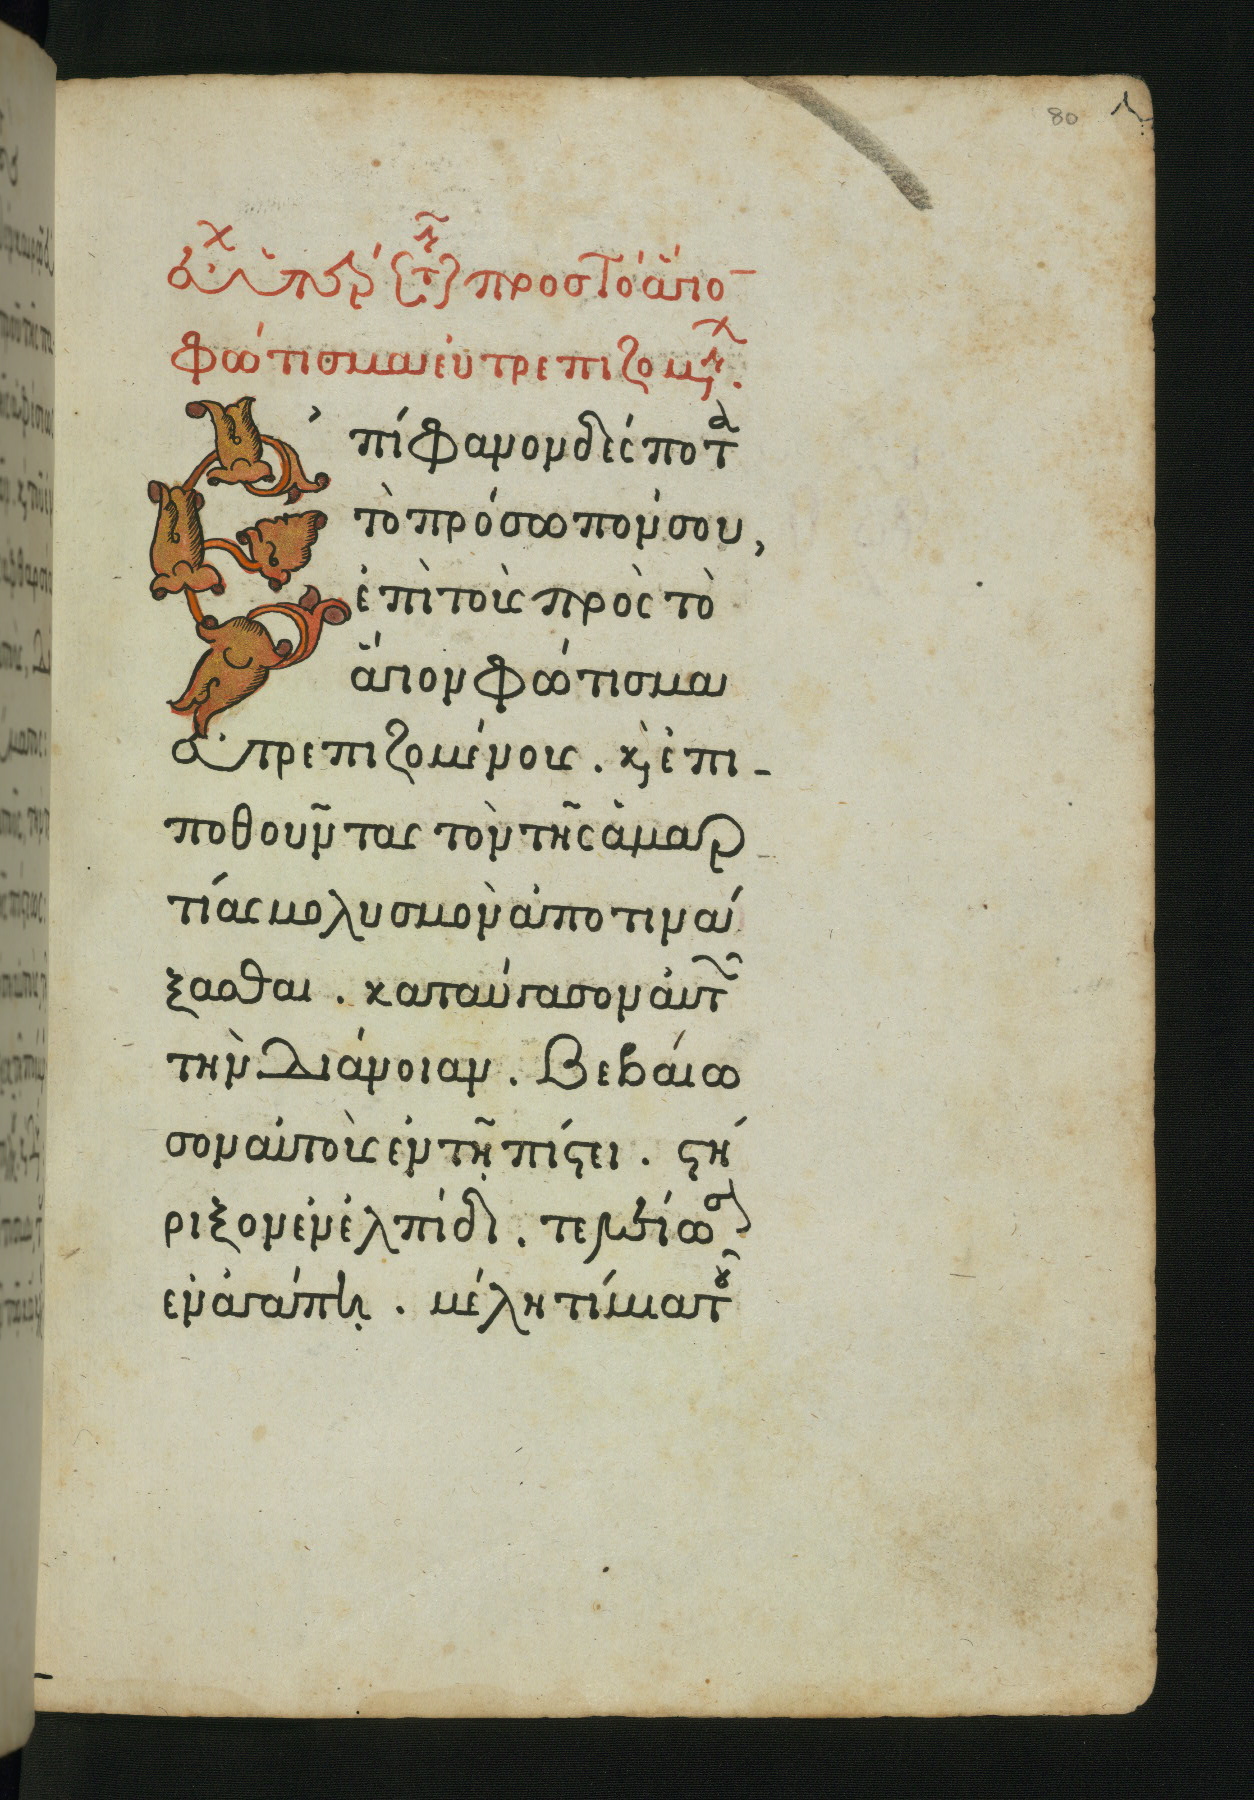 80
εὐχ ὑπὲρ τῶν πρὸς τὸ ἅγιο
φώτισμα εὐτρεπιζομων.
Ἐπίφανον δέσποτα
τὸ πρόσωπόν σου,
ἐπὶ τοὺς πρὸς τὸ
ἅγιον φώτισμα
εὐτρεπιζομένους. κ, ἐπι-
ποθοῦντας τὸν τῆς ἁμαρ
τίας μολυσμὸν ἀποτινά
ξασθαι. καταύγασον αὐτῶν
τὴν διάνοιαν. βεβαίω
σον αὐτοὺς ἐν τῇ πίστει. στή
ριξον ἐν ἐλπίδι. τελείωσον
ἐν ἀγάπῃ. μέλη τίμια τοῦ